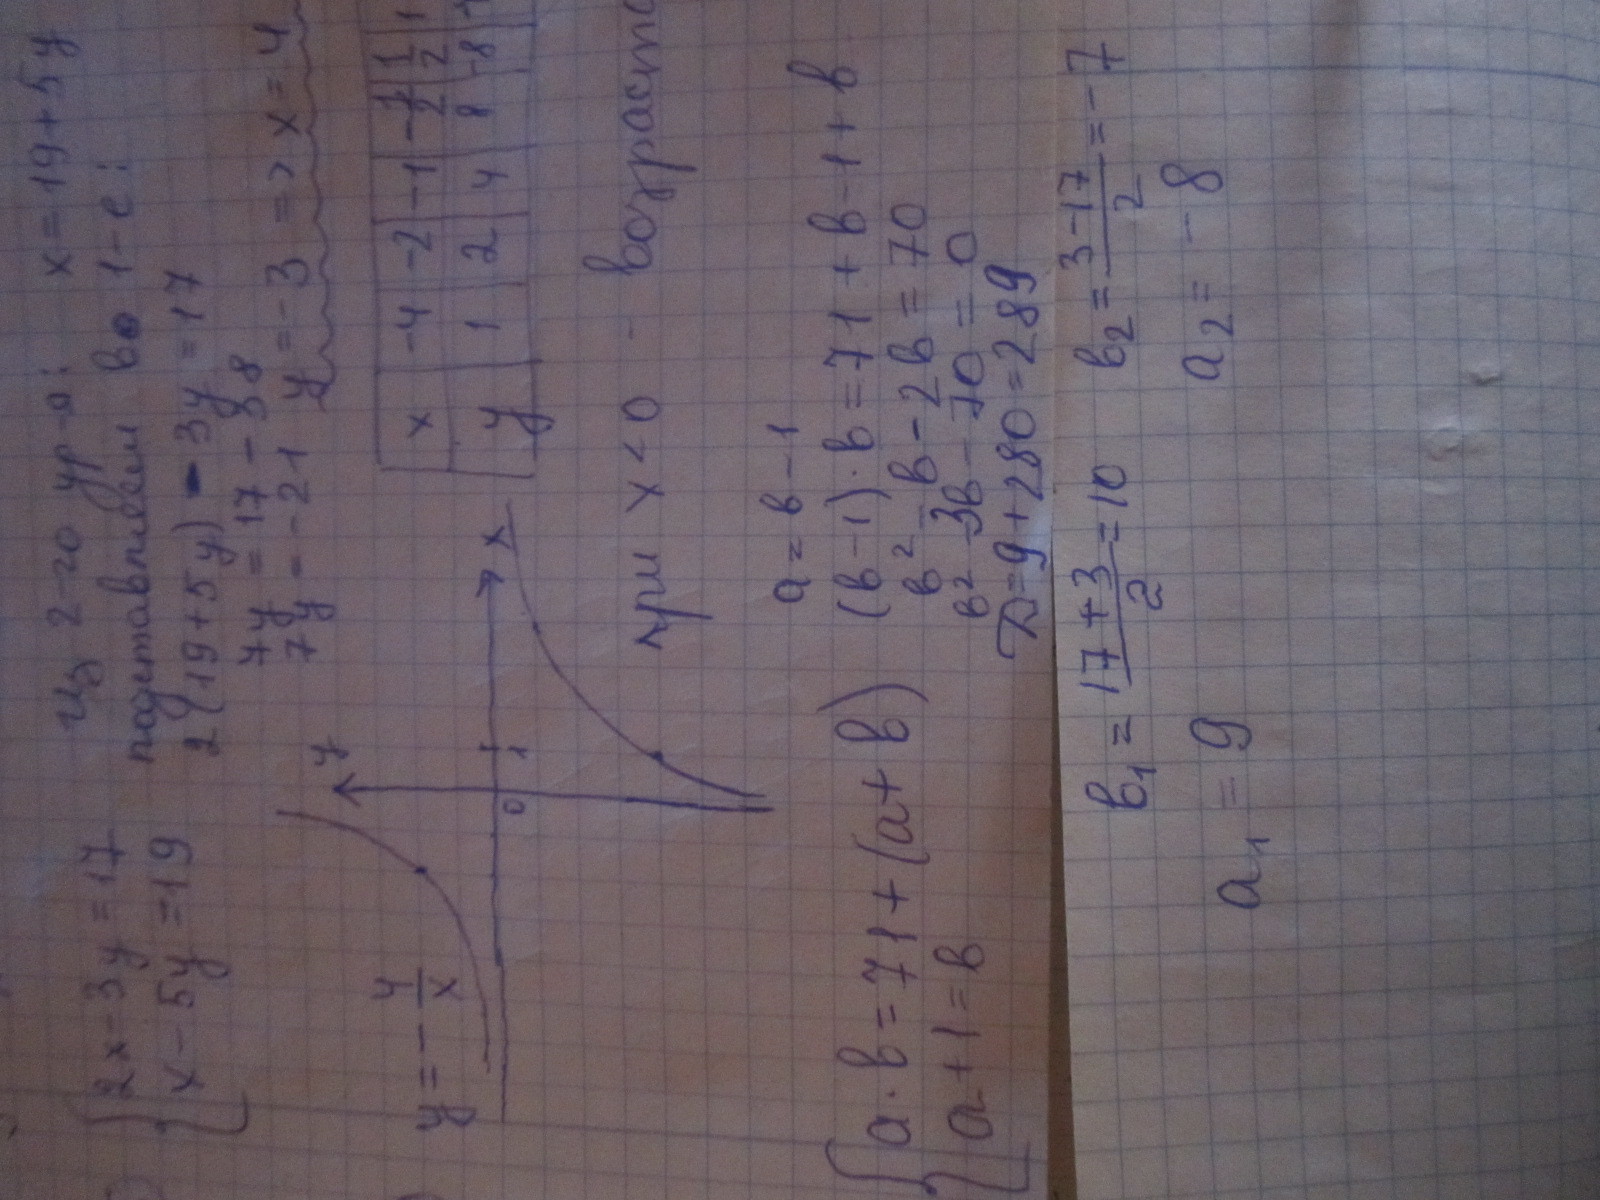 {2x-3y=17
x-5y=19
Из 2-го ур-я: x=19+5y
подставляем во 1-е:
2(19+5y)-3y=17
7y=17-38
7y=-21 y=-3 => x=4
y=-4/x
y
x
0
1
x -4 -2 -1 -1/2 1/2 1
y 1 2 4 8 -8
при x<0 - возраст
{a·b=71+(a+b)
a+1=b
a=b-1
(b-1)·b=71+b-1+b
b²-b-2b=70
b²-3b-70=0
D=9+280=289
b1=17+3/2=10 b2=3-17/2=-7
a1=9 a2=-8